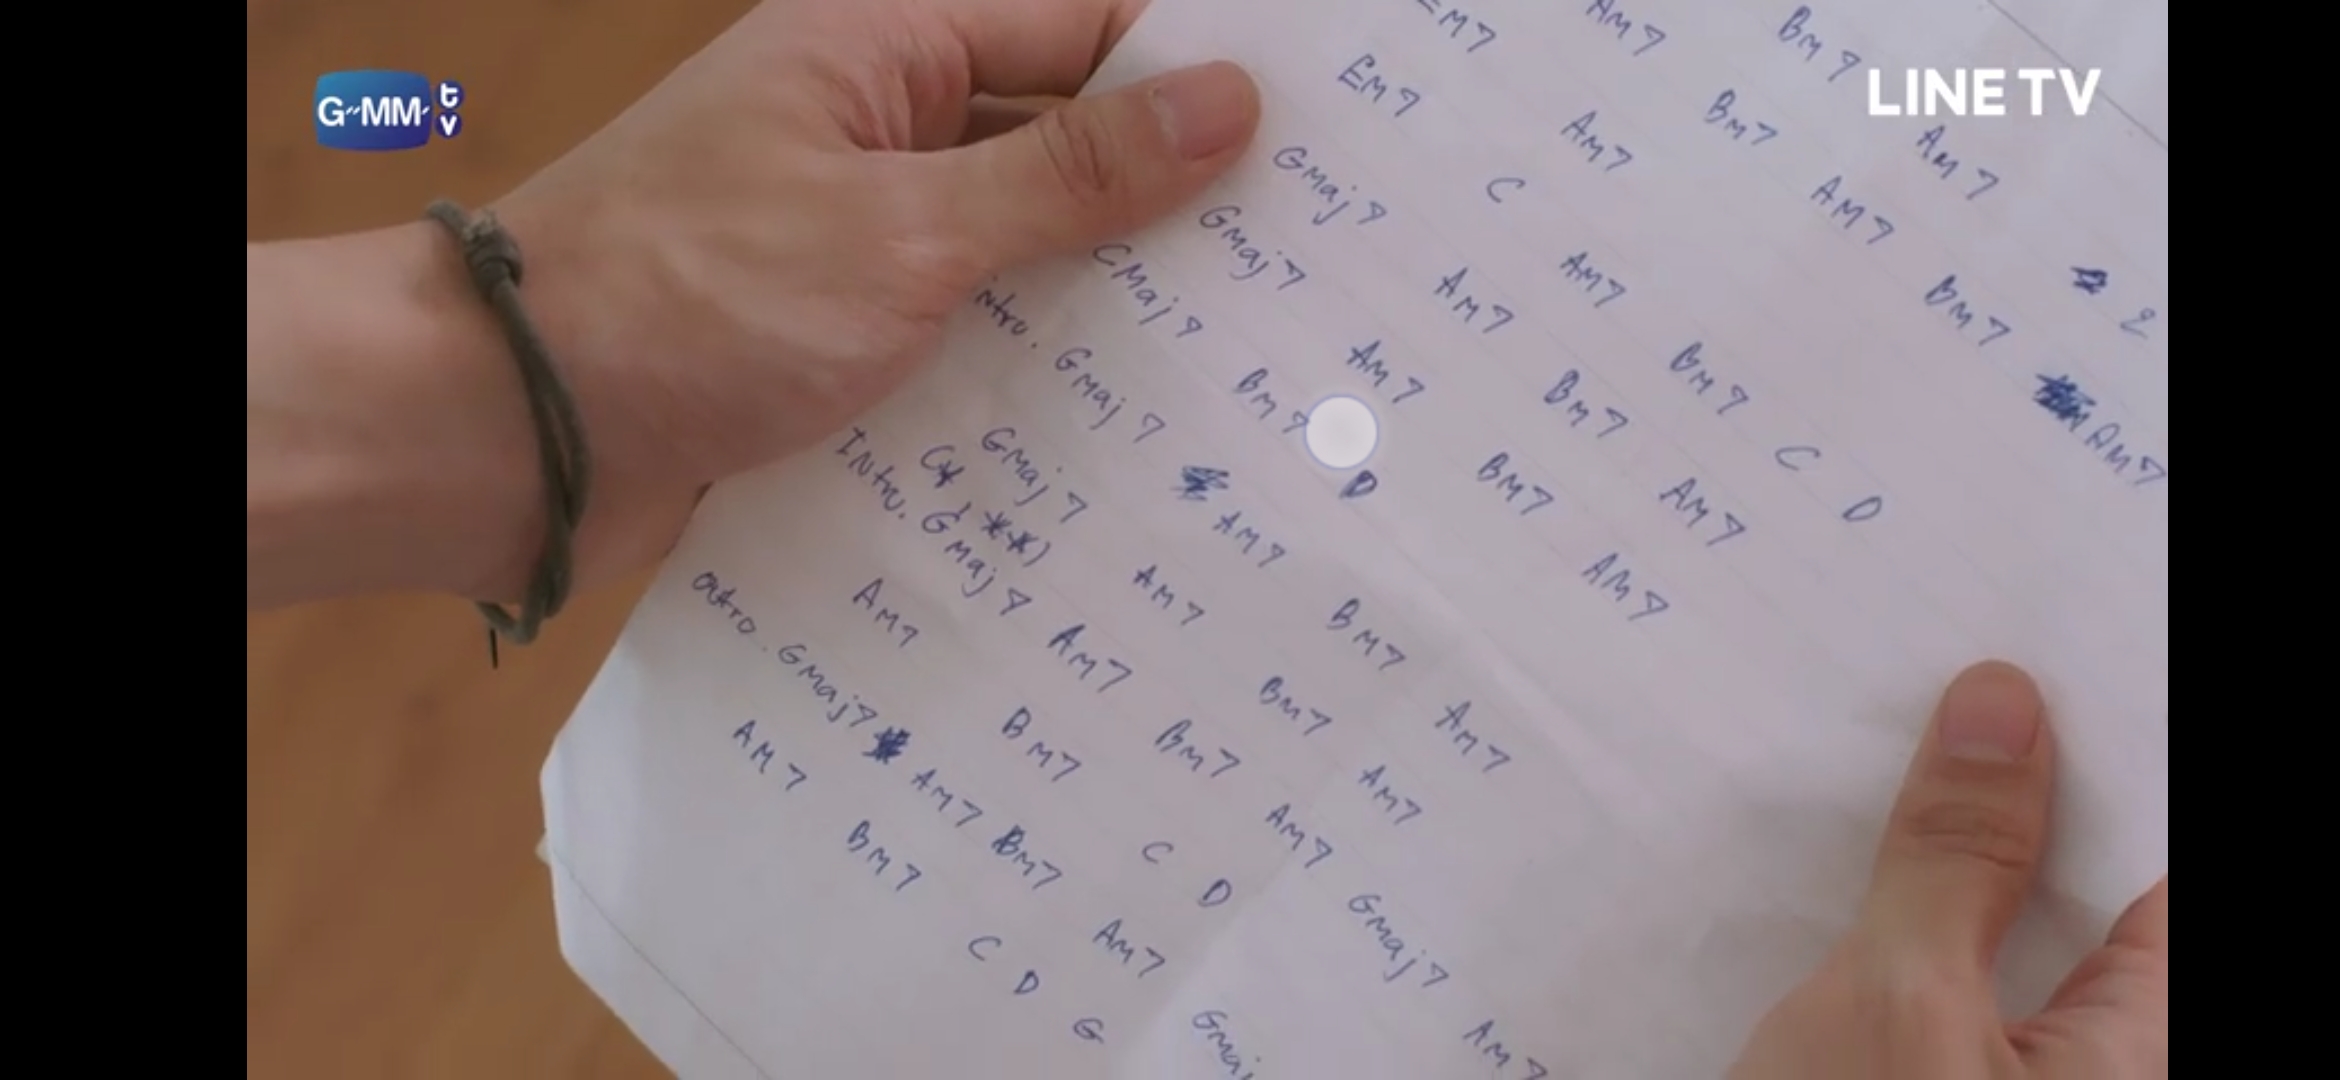 GMM tv
LINE TV
Bm7 Am7 2
Am7 Bm7 Am7 Bm7 Am7
Em7 Am7
Em7 C Am7 Bm7 C D
Gmaj7 Am7 Bm7 Am7
Gmaj7 Am7 Bm7 Am7
CMaj7 Bm7 D
intru. Gmaj7 Am7 Bm7 Am7
Gmaj7 Am7 Bm7 Am7
(*, **)
INtru. Gmaj7 Am7 Bm7 Am7 Gmaj7 Am7
Am7 Bm7 C D
outro. Gmaj7 Am7 Bm7 Am7 Gmaj
Am7 Bm7 C D G